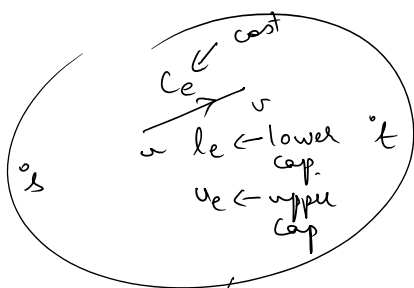 cost
Ce
v
u le ← lower
cap.
s t
ue ← upper
cap